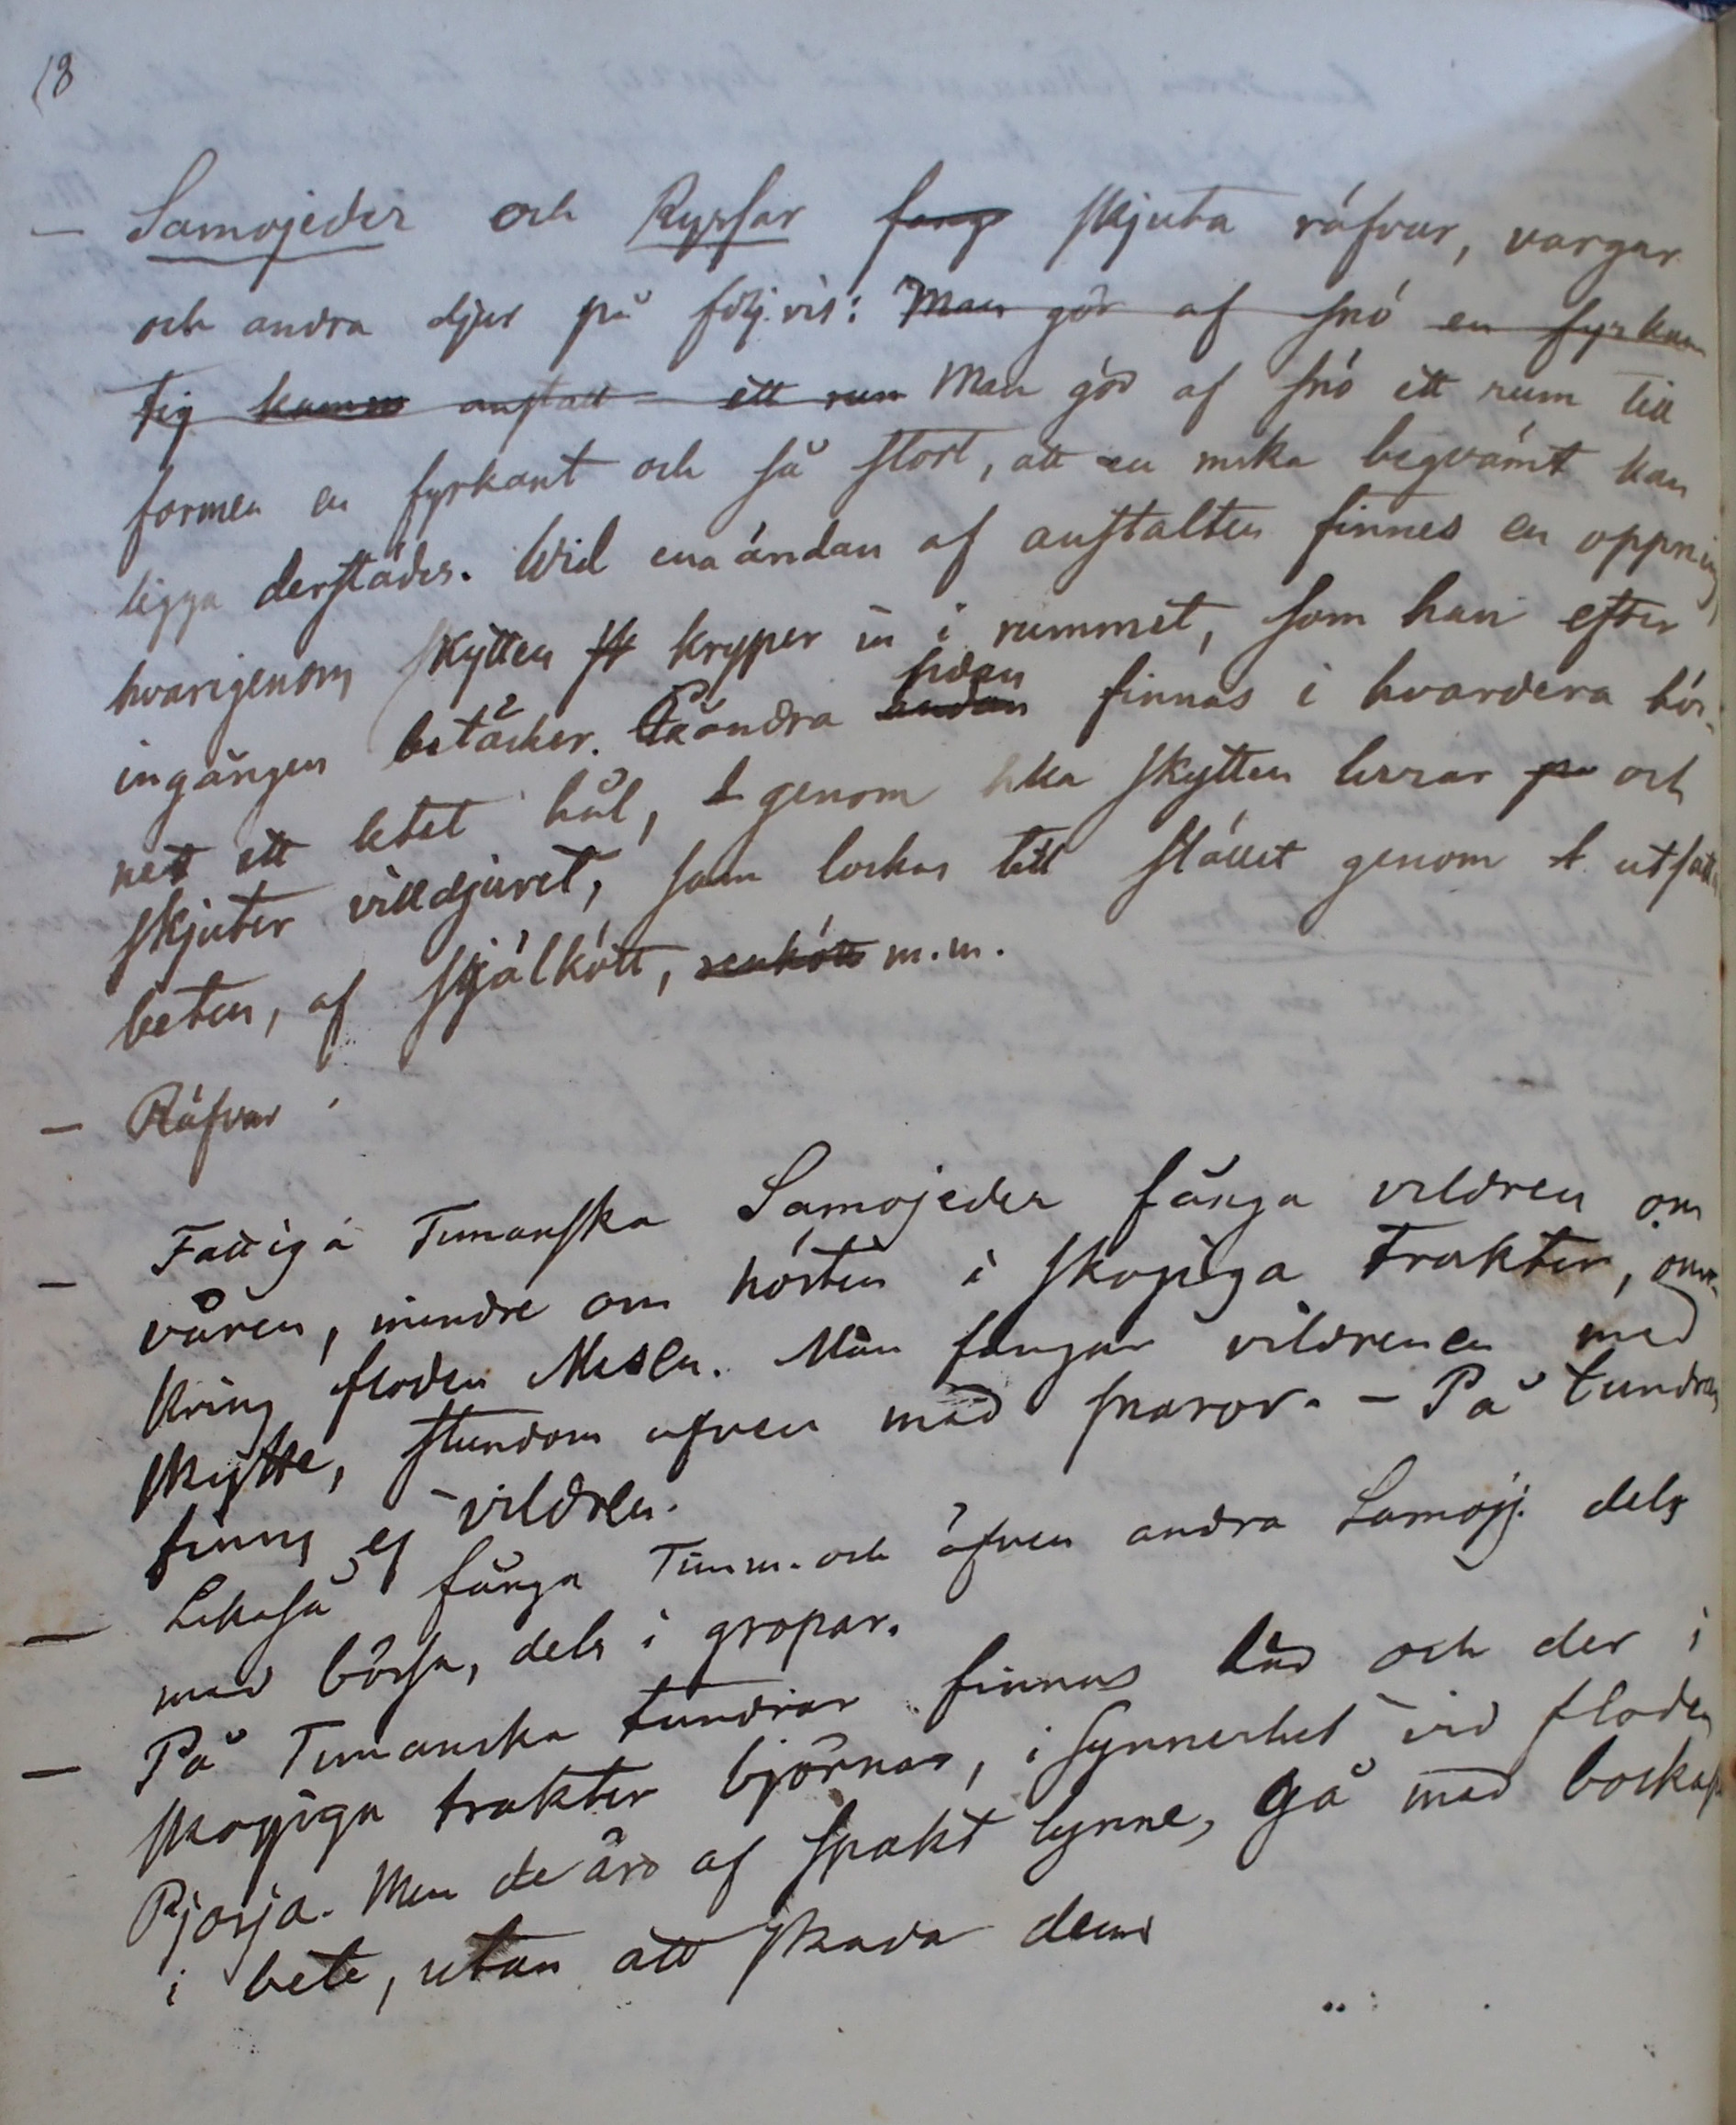 18
— Samojeder och Ryssar fång skjuta räfvar, vargar
och andra djur på följ. vis: Man gör af snö en fyrkan
tig kamm anstalt – ett rum Man gör af snö ett rum till
formen en fyrkant och så stort, att en mska beqvämt kan
ligga derstädes. Wid ena ändan af anstalten finnes en öppning
hvarigenom skytten sk kryper in i rummet, som han efter
ingången betäcker. På andra ändan sidan finnas i hvardera hör-
net ett litet hål, genom hka skytten lurar på och
skjuter villdjuret, som lockas till stället genom utsatta
beten, af själkött, renkött m.m.
— Räfvar
— Fattiga Timanska Samojeder fånga vildren om
våren, mindre om hösten i skogiga trakter, om-
kring floden Mesen. Man fångar vildrenen med
skytte, stundom äfven med snaror. – På tundran
finns ej vildren.
— Likaså fånga Timm. och äfven andra Samoj. dels
med bössa, dels i gropar.
— På Timanska tundrar finnas här och der i
skogiga trakter björnar, i synnerhet vid floden
Pjosja. Men de äro af spakt lynne, gå med boskap
i bete, utan att skada dem